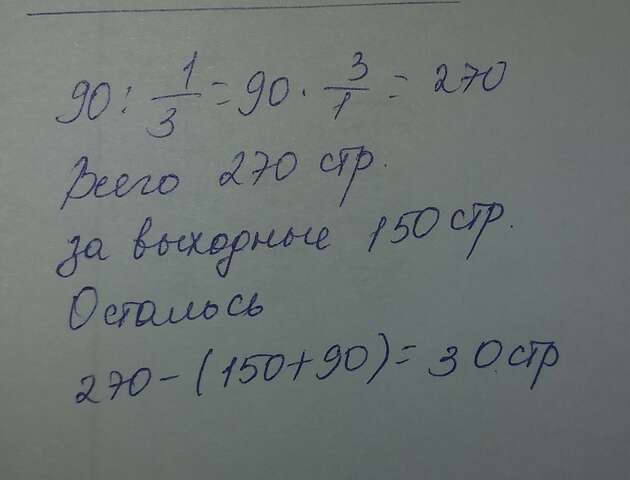 90 : 1/3 = 90 · 3/1 = 270
Всего 270 стр.
за выходные 150 стр.
Осталось
270 - (150 + 90) = 30 стр